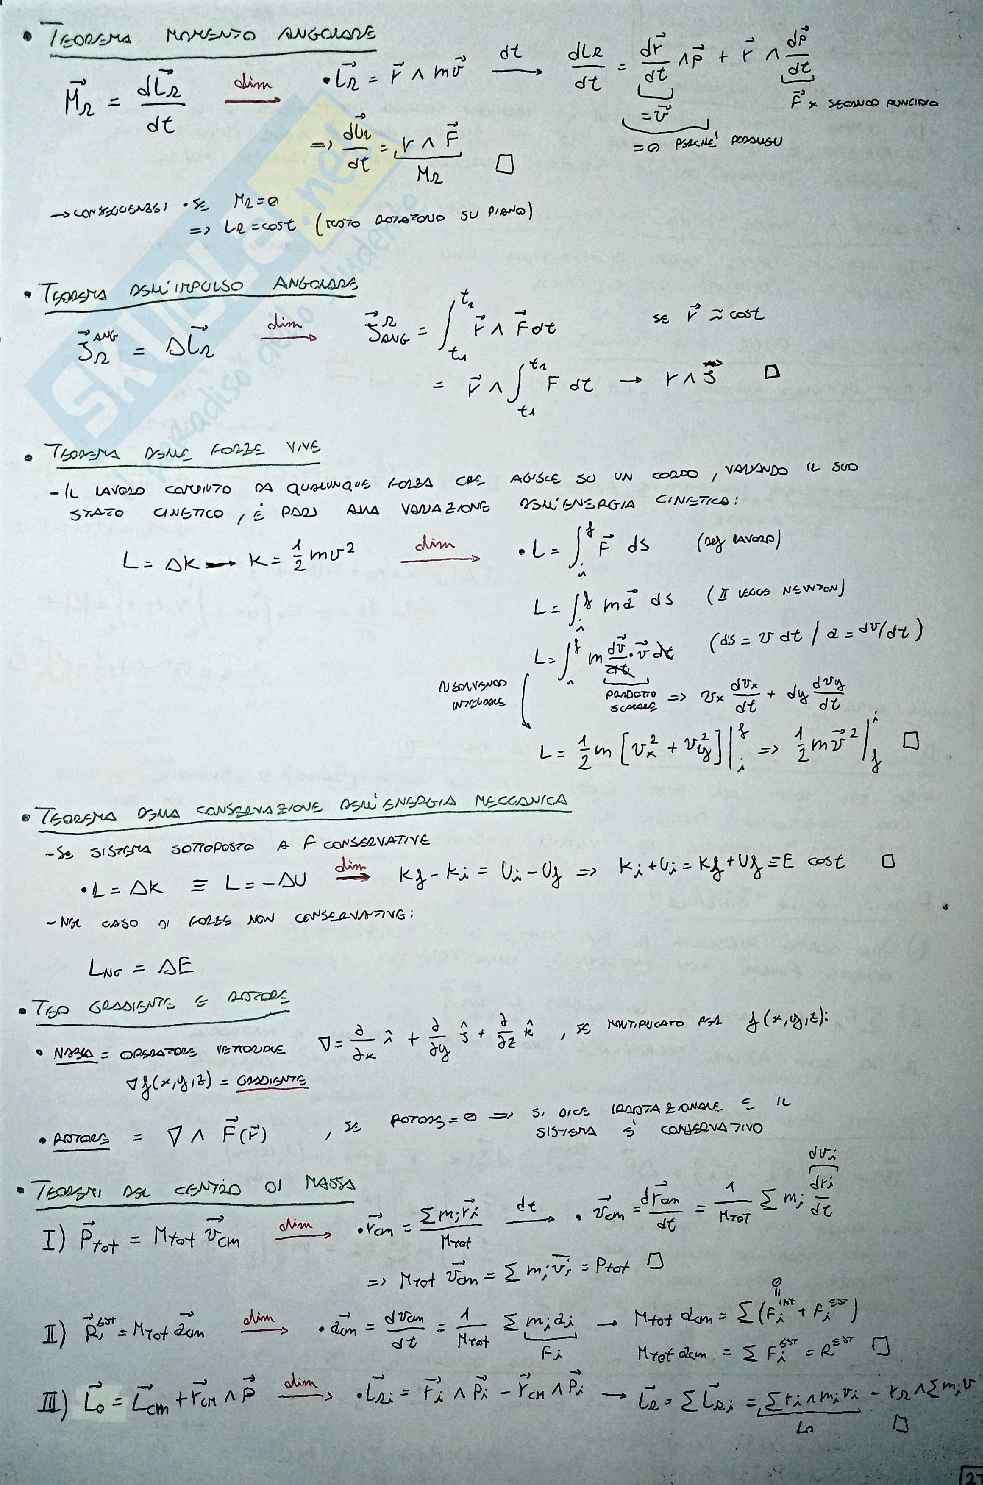 • TEOREMA MOMENTO ANGOLARE
M⃗_Ω = dL⃗_Ω/dt dim → • L⃗_Ω = r⃗ ∧ mv⃗ dt → dL_Ω/dt = dr⃗/dt ∧ p⃗ + r⃗ ∧ dp⃗/dt
= v⃗
F⃗ x SECONDO PRINCIPIO
= 0 PERCHÉ
=> dL⃗_Ω/dt = r ∧ F⃗ □
M_Ω
→ CONSEGUENZE: • SE M_Ω = 0
=> L_Ω = cost (MOTO ROTATORIO SU PIANO)
• TEOREMA DELL'IMPULSO ANGOLARE
J⃗_Ω^ANG = ΔL⃗_Ω dim → J⃗_ANG^Ω = ∫_t1^t2 r⃗ ∧ F⃗ dt se r⃗ ≈ cost
= r⃗ ∧ ∫_t1^t2 F dt → r ∧ J⃗ □
• TEOREMA DELLE FORZE VIVE
- IL LAVORO COMPIUTO DA QUALUNQUE FORZA CHE AGISCE SU UN CORPO, VARIANDO IL SUO
STATO CINETICO, È PARI ALLA VARIAZIONE DELL'ENERGIA CINETICA:
L = ΔK → K = 1/2 mv² dim → • L = ∫_i^f F⃗ ds (def LAVORO)
L = ∫_i^f ma⃗ ds (II LEGGE NEWTON)
L = ∫_i^f m dv⃗/dt · v⃗ dt (ds = v dt / a = dv/dt)
RISOLVENDO INTEGRALE
PRODOTTO SCALARE => v_x dv_x/dt + dy dv_y/dt
L = 1/2 m [v_x² + v_y²]|_i^f => 1/2 mv⃗²|_f^i □
• TEOREMA DELLA CONSERVAZIONE DELL'ENERGIA MECCANICA
- SE SISTEMA SOTTOPOSTO A F CONSERVATIVE
• L = ΔK ≡ L = -ΔU dim → K_f - K_i = U_i - U_f => K_i + U_i = K_f + U_f ≡ E cost □
- NEL CASO DI FORZE NON CONSERVATIVE:
L_NC = ΔE
• TEO GRADIENTE E ROTORE
• NABLA = OPERATORE VETTORIALE ∇ = ∂/∂x î + ∂/∂y ĵ + ∂/∂z k̂, SE MOLTIPLICATO PER f(x,y,z):
∇f(x,y,z) = GRADIENTE
• ROTORE = ∇ ∧ F⃗(r⃗), SE ROTORE = 0 => SI DICE IRROTAZIONALE E IL
SISTEMA È CONSERVATIVO
• TEOREMI DEL CENTRO DI MASSA
I) P⃗_tot = M_tot v⃗_cm dim → • r⃗_cm = Σ m_i r⃗_i / M_tot dt → • v⃗_cm = dr⃗_cm/dt = 1/M_TOT Σ m_i dr_i/dt
dv_i
=> M_tot v⃗_cm = Σ m_i v⃗_i = P_tot □
II) R⃗_i^EST = M_TOT a⃗_cm dim → • a⃗_cm = dv_cm/dt = 1/M_tot Σ m_i a_i → M_tot a_cm = Σ(F_i^INT + F_i^EST)
0
F_i
M_tot a_cm = Σ F_i^EST = R^EST □
III) L⃗_0 = L⃗_cm + r⃗_cm ∧ P⃗ dim → • L⃗_Ωi = r⃗_i ∧ P⃗_i - r⃗_cm ∧ P⃗_i → L⃗_Ω = Σ L⃗_Ωi = Σ r_i ∧ m_i v_i - r_Ω ∧ Σ m_i v
L_0 □
SKUOLA.net
paradiso dello studente
27